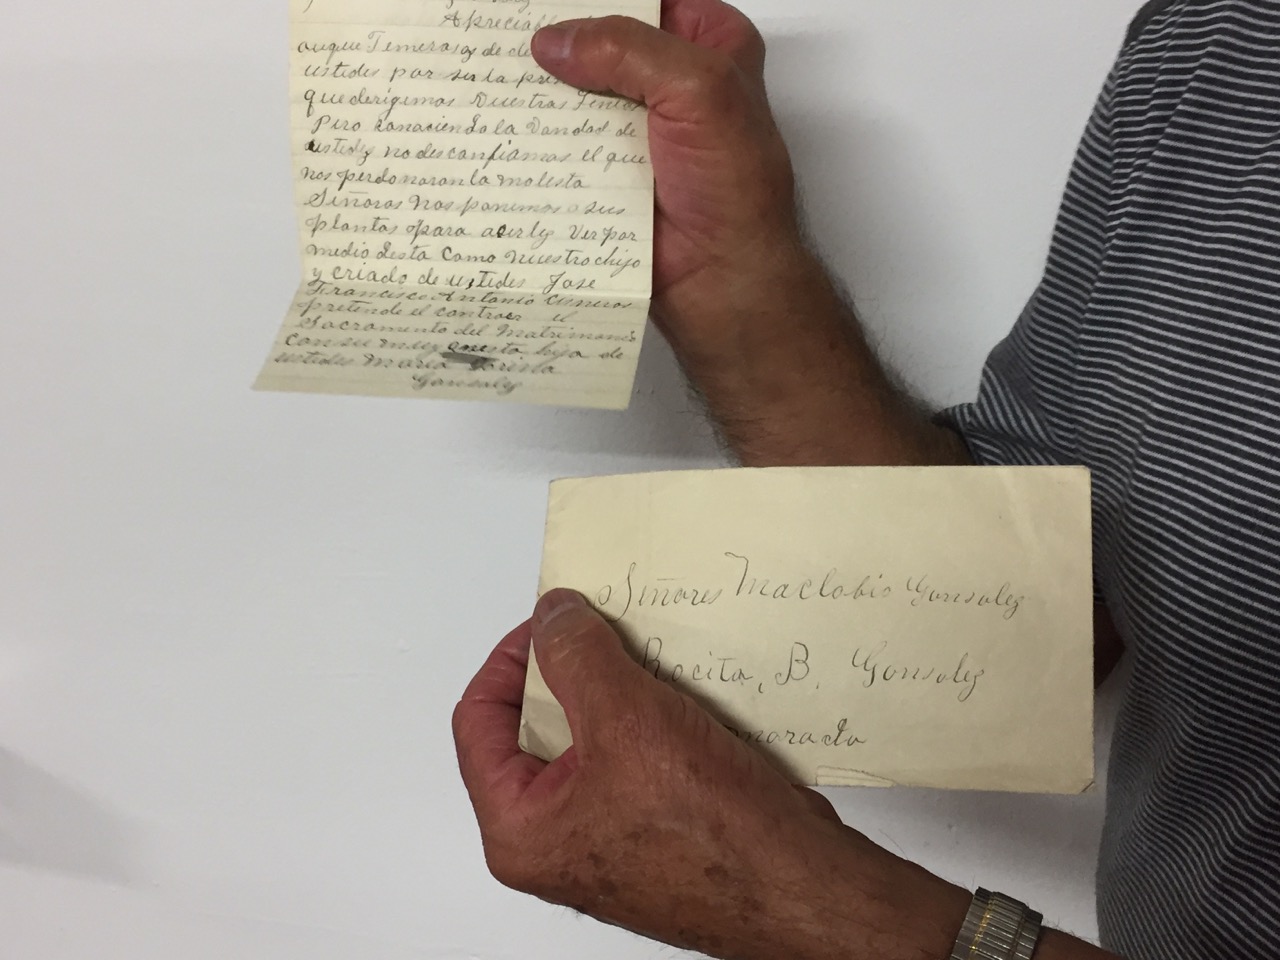 auque Temerosoz de
ustedes por ser la
que derigimos Nuestras
Pero conociendo la Vondad de
ustedez no desconfiamos el que
nos perdonaran la molesta
Señores Nos ponemos a sus
plantas para acerly Ver por
medio desta Como nuestro hijo
y criado de ustedes Jose
Francisco Antonio Cisneros
pretende el contraer el
Sacramento del Matrimonio
con su muy onesta hija de
ustedes Maria
Gonsalez
Señores Maclobio Gonsolez
Rocita, B. Gonsolez